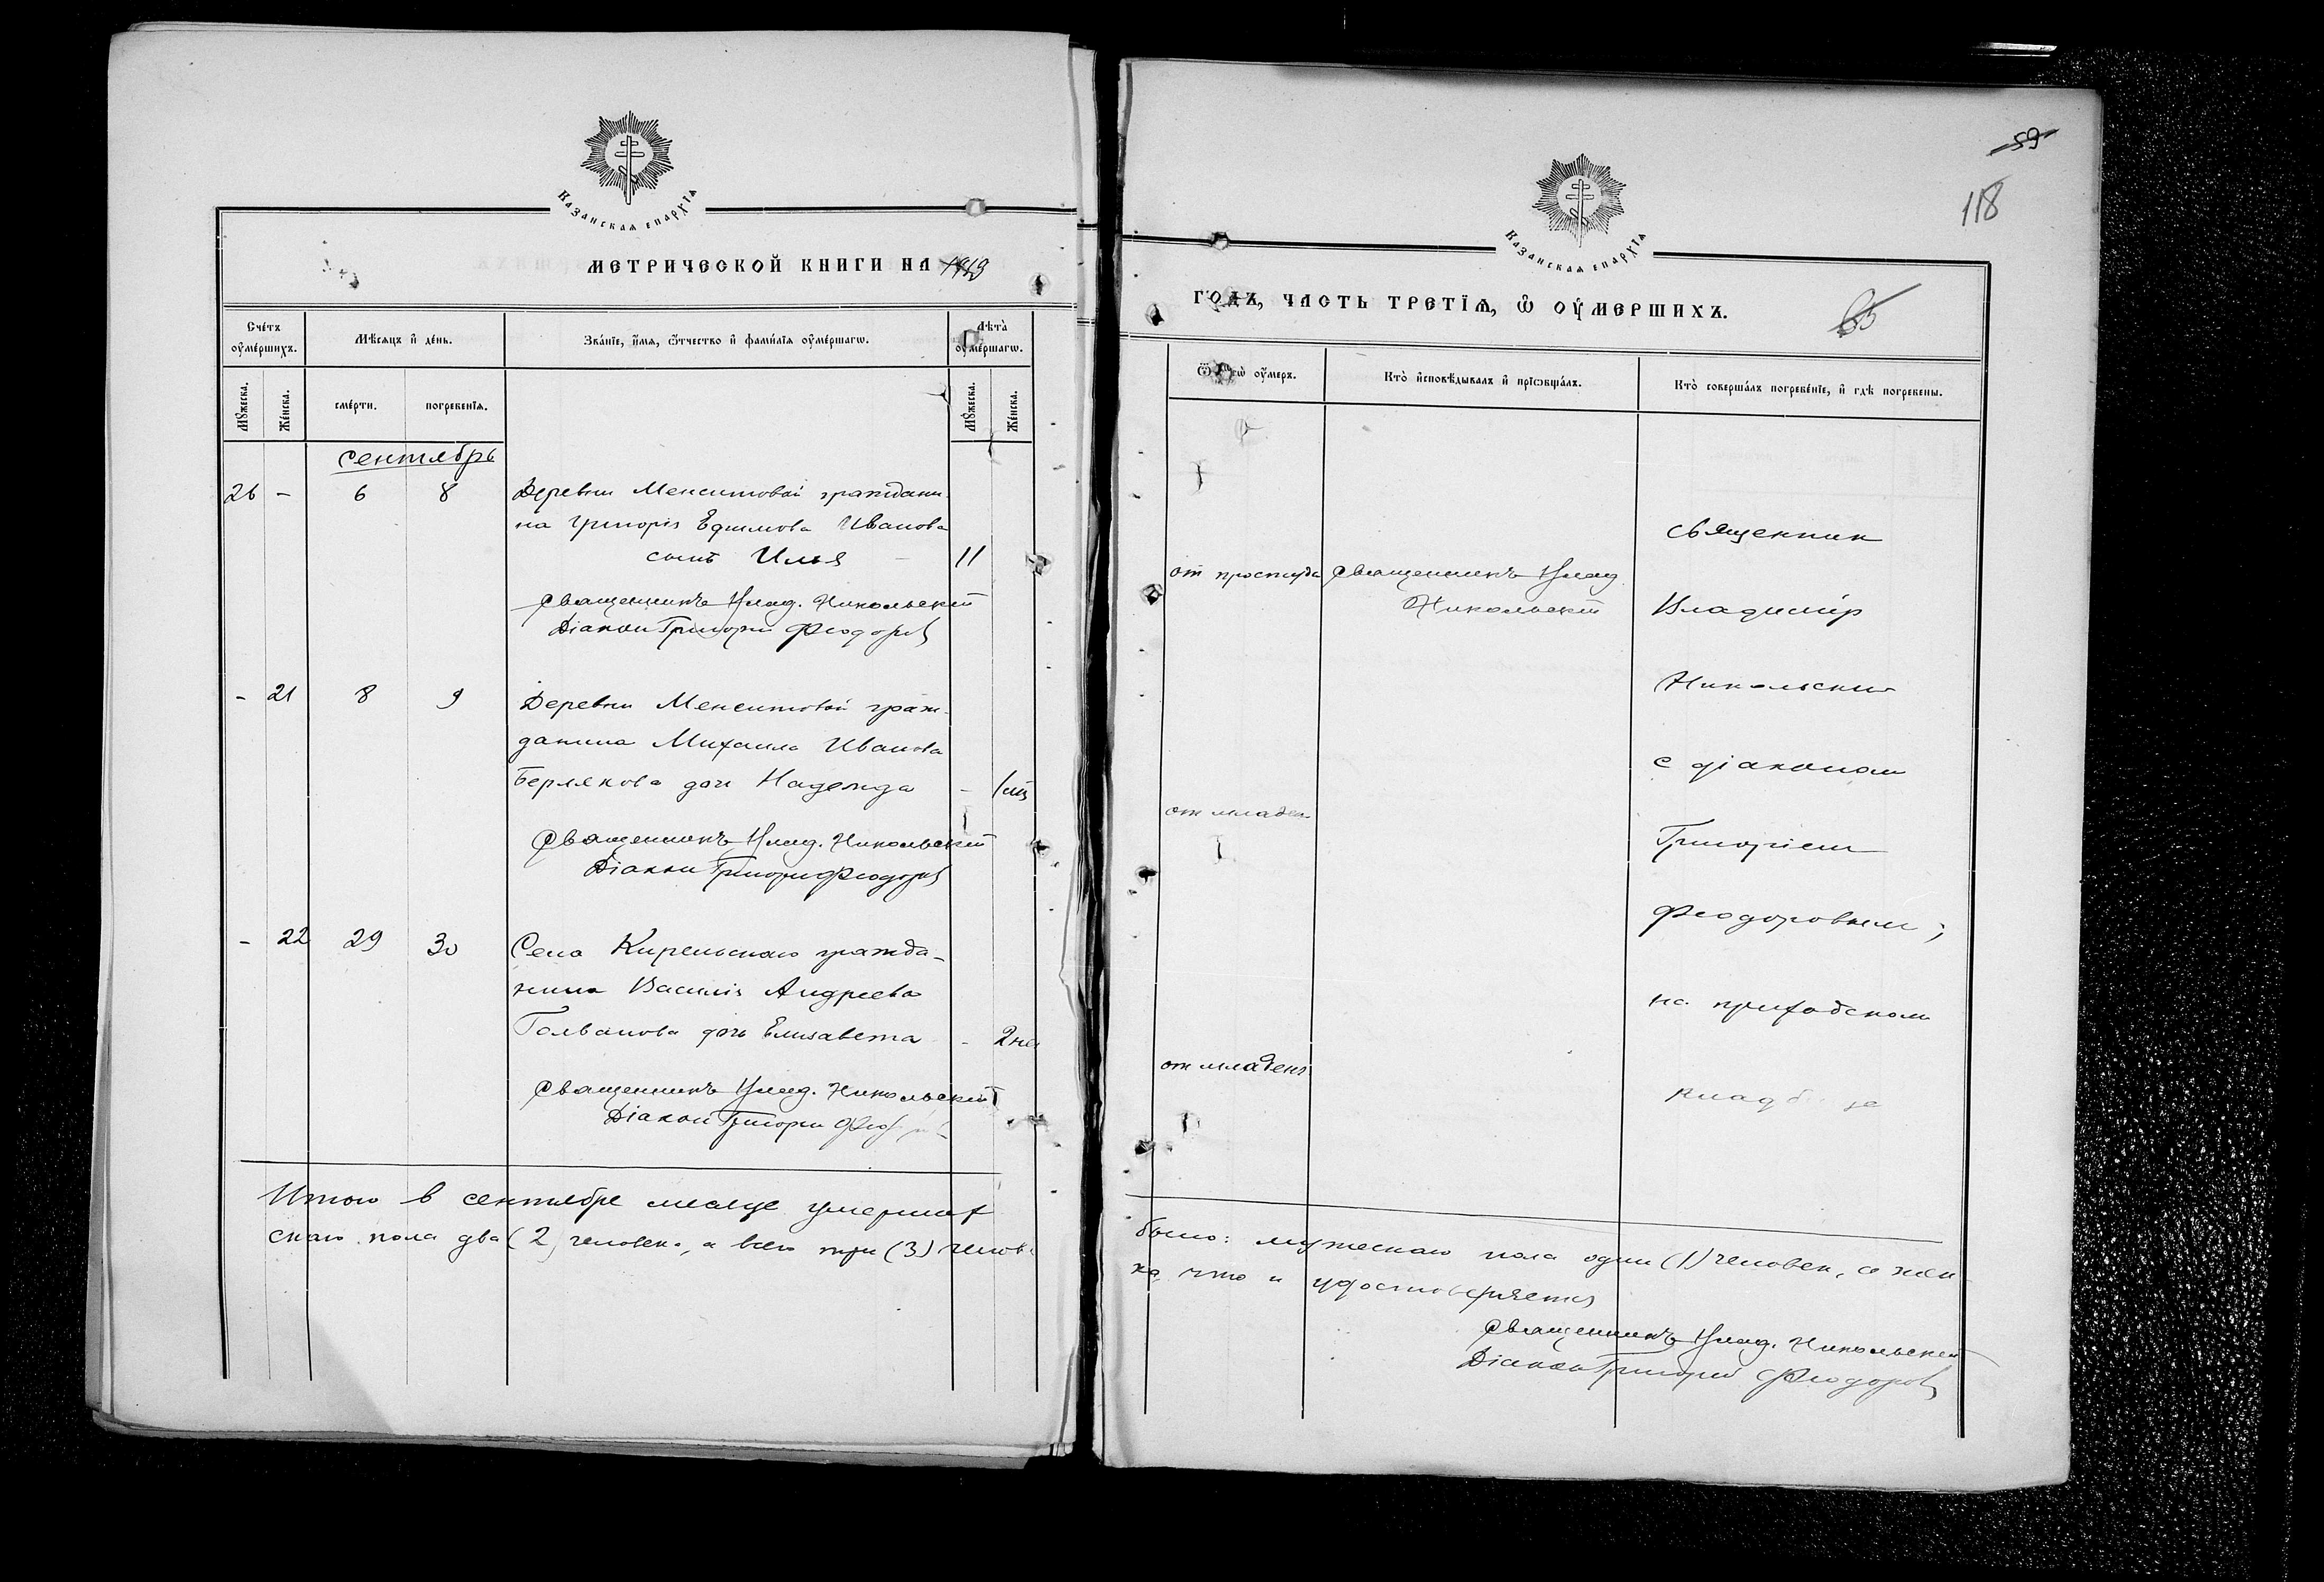 Казанская епархїя
МЕТРИЧЕСКОЙ КНИГИ НА 1919
Сче́тъ ᲂу҆ме́ршихъ.
Мѣсяцъ и҆ де́нь.
Зва́нїе, и҆́мя, ѻ҆́тчество и҆ фами́лїя ᲂу҆ме́ршагѡ.
Лѣта̀ ᲂу҆ме́ршагѡ.
Мꙋжеска.
Же́нска.
сме́рти.
погребенїя.
Мꙋжеска.
Же́нска.
сентябрь
26 - 6 8 Деревни Менситовой граждани-
на Григорія Ефимова Иванова
сынъ Илья 11
Священникъ Влад. Никольскій
Діакон Григорій Феодоров
- 21 8 9 Деревни Менситовой граж-
данина Михаила Иванова
Берлякова дочь Надежда - 1
Священникъ Влад. Никольскій
Діакон Григорій Феодоров
- 22 29 30 Села Кирельскаго гражда-
нина Василія Андреева
Голованова дочь Елизавета - 2 не
Священникъ Влад. Никольскій
Діакон Григорій
Итого в сентябре месяце умерших
скаго пола два (2) человека, а всего три (3) челове
59
118
Казанская епархїя
ГОДЪ, ЧАСТЬ ТРЕТІЯ, Ѡ ОУМЕРШИХЪ.
65
Ѿ чегѡ̀ ᲂу҆́меръ.
Кто̀ и҆сповѣ́дывалъ и҆ прїѡбща́лъ.
Кто̀ соверша́лъ погребе́нїе, и҆ гдѣ̀ погребены.
от простуды
Священникъ Влад.
Никольскій
Священник
Владимір
Никольский
с діаконом
от младен
Григоріем
Феодоровым;
на приходском
от младен
кладбище
было: мужескаго пола один (1) человек, а жен
ка, что и удостоверяется
Священникъ Влад. Никольскій
Діакон Григорій Феодоров